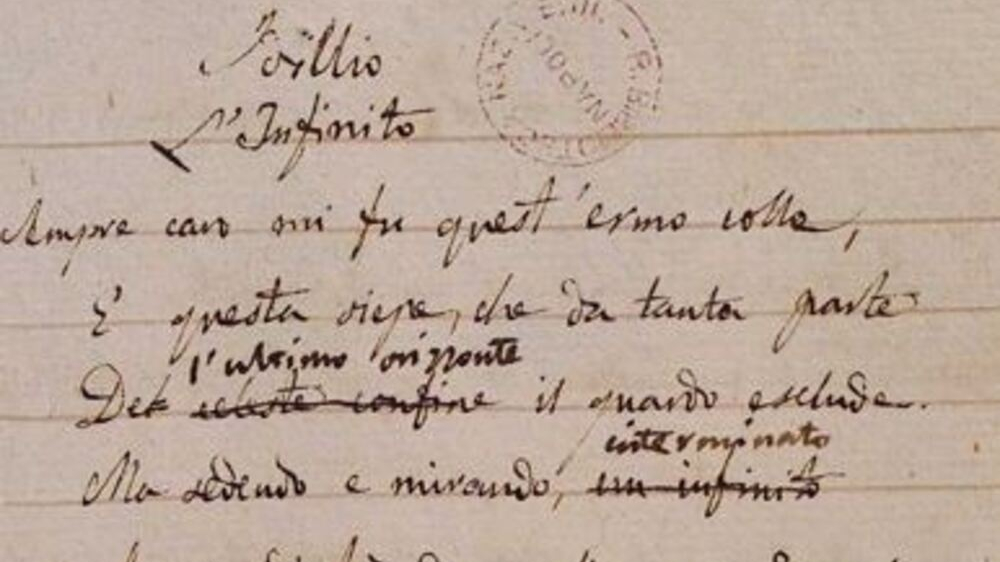 Idillio
L'Infinito
NAPOLI
Sempre caro mi fu quest'ermo colle,
E questa siepe, che da tanta parte
l'ultimo orizzonte
Del celeste confine il guardo esclude.
interminato
Ma sedendo e mirando, un infinito